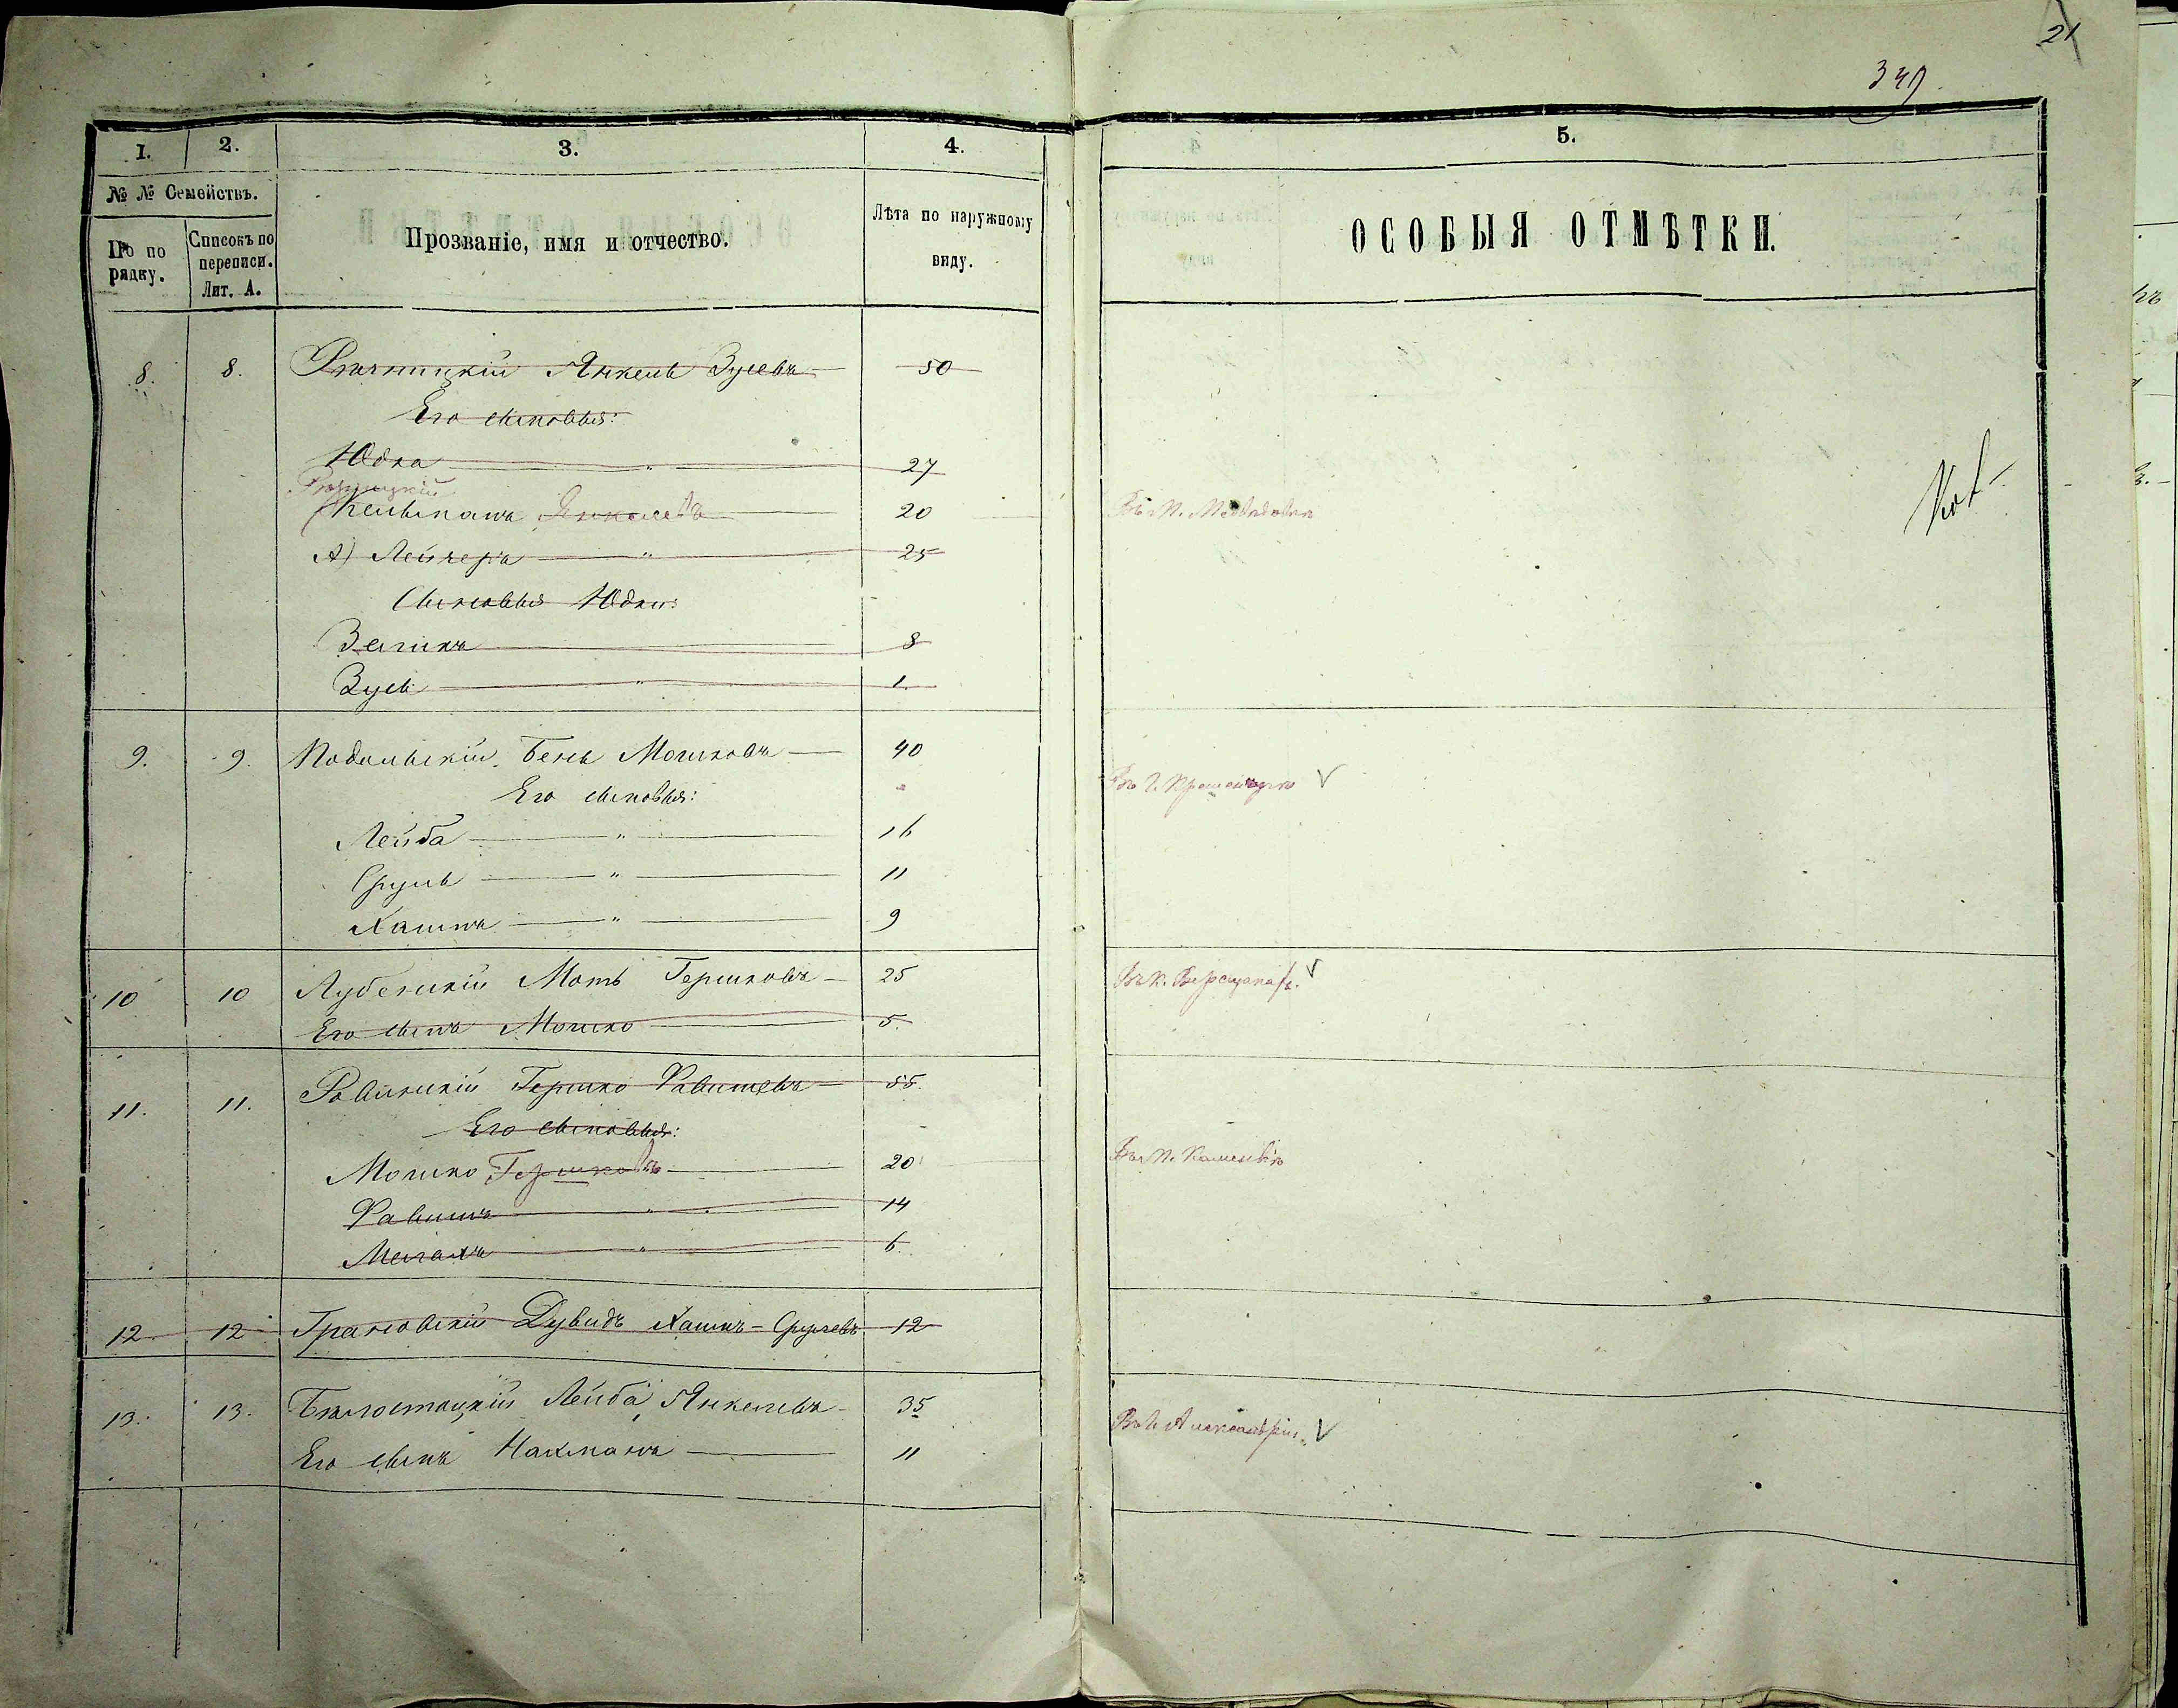 21
340
1.
2.
3.
4.
5.
№ № Семействъ.
По по
рядку.
Списокъ по
переписи.
Лит. А.
Прозваніе, имя и отчество.
Лѣта по наружному
виду.
ОСОБЫЯ ОТМѢТКИ.
8. 8. Рѣчицкій Янкель Зусевъ 50
Его сыновья:
Юдка " 27
Рѣчицкій
Кельманъ Янкелевъ 20 Въ м. Медвѣдовкѣ
А) Лейзеръ " 25
Сыновья Юдки:
Зеликъ 8
Зусь " 1.
9. 9. Подольскій Бень Мошковъ 40
Его сыновья: Въ г. Кременчугѣ V
Лейба " 16
Сруль " 11
Хаимъ " 9
10 10 Лубенскій Моть Гершковъ 25 V
Его сынъ Мошко 5.
11. 11. Ровинскій Гершко Рабиневъ 55.
Его сыновья:
Мошко Гершковъ 20 Въ м. Каменкѣ
" 14
" 6.
12. 12 Грановскій Дувидъ Хаимъ-Срулевъ 12
13. 13. Бѣлостоцкій Лейба Янкелевъ 35 V
Его сынъ Нахманъ 11